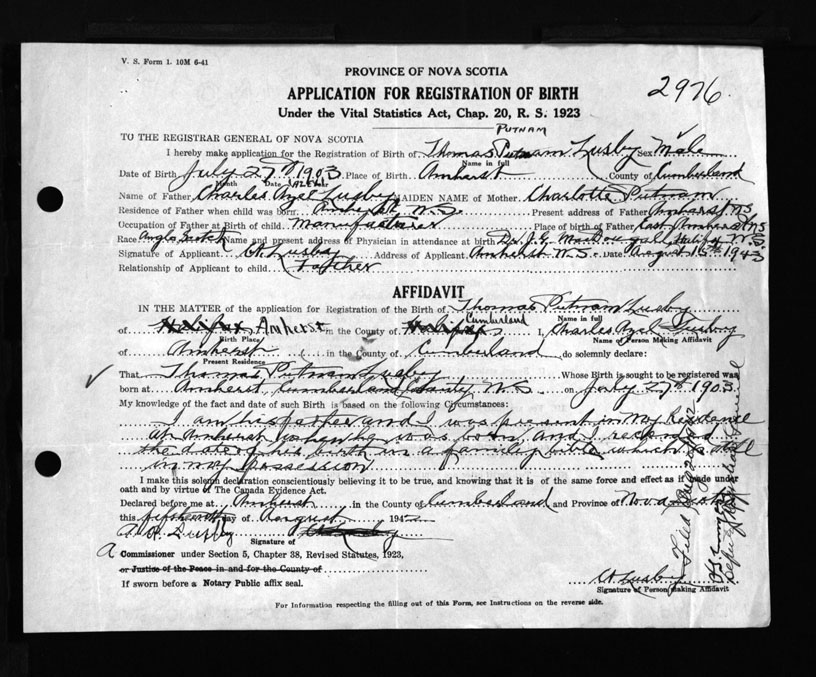 V. S. Form 1. 10M 6-41
2976
PROVINCE OF NOVA SCOTIA
APPLICATION FOR REGISTRATION OF BIRTH
Under the Vital Statistics Act, Chap. 20, R. S. 1923
PUTNAM
TO THE REGISTRAR GENERAL OF NOVA SCOTIA
I hereby make application for the Registration of Birth of Thomas Putnam Lusby Sex Male
Name in full
Date of Birth July 27th 1903 Place of Birth Amherst County of Cumberland
Month Date
Name of Father Charles Azel Lusby MAIDEN NAME of Mother Charlotte Putnam
Residence of Father when child was born Amherst N.S. Present address of Father Amherst NS
Occupation of Father at Birth of child Manufacturer Place of birth of Father East Amherst NS
Race Anglo Name and present address of Physician in attendance at birth Dr. J. G. N.S.
Signature of Applicant Lusby Address of Applicant Amherst N.S. Date August 15th
Relationship of Applicant to child Father
AFFIDAVIT
IN THE MATTER of the application for Registration of the Birth of Thomas Putnam Lusby
Cumberland Name in full
of Halifax Amherst in the County of Halifax I, Charles Azel Lusby
Birth Place Name of Person Making Affidavit
of Amherst in the County of Cumberland do solemnly declare:
Present Residence
That Thomas Putnam Lusby Whose Birth is sought to be registered was
born at Amherst, Cumberland County, N.S. on July 27th 1903
My knowledge of the fact and date of such Birth is based on the following Circumstances:
I am his father and I was present in my Residence
at Amherst when he was born, and I recorded
the date of his birth in a family bible which is still
in my possession
I make this solemn declaration conscientiously believing it to be true, and knowing that it is of the same force and effect as if made under
oath and by virtue of The Canada Evidence Act.
Declared before me at Amherst in the County of Cumberland and Province of Nova Scotia
this fifteenth day of August 194
Signature of
A Commissioner under Section 5, Chapter 38, Revised Statutes, 1923,
or Justice of the Peace in and for the County of
If sworn before a Notary Public affix seal.
Lusby
Signature of Person Making Affidavit
For Information respecting the filling out of this Form, see Instructions on the reverse side.
Filed